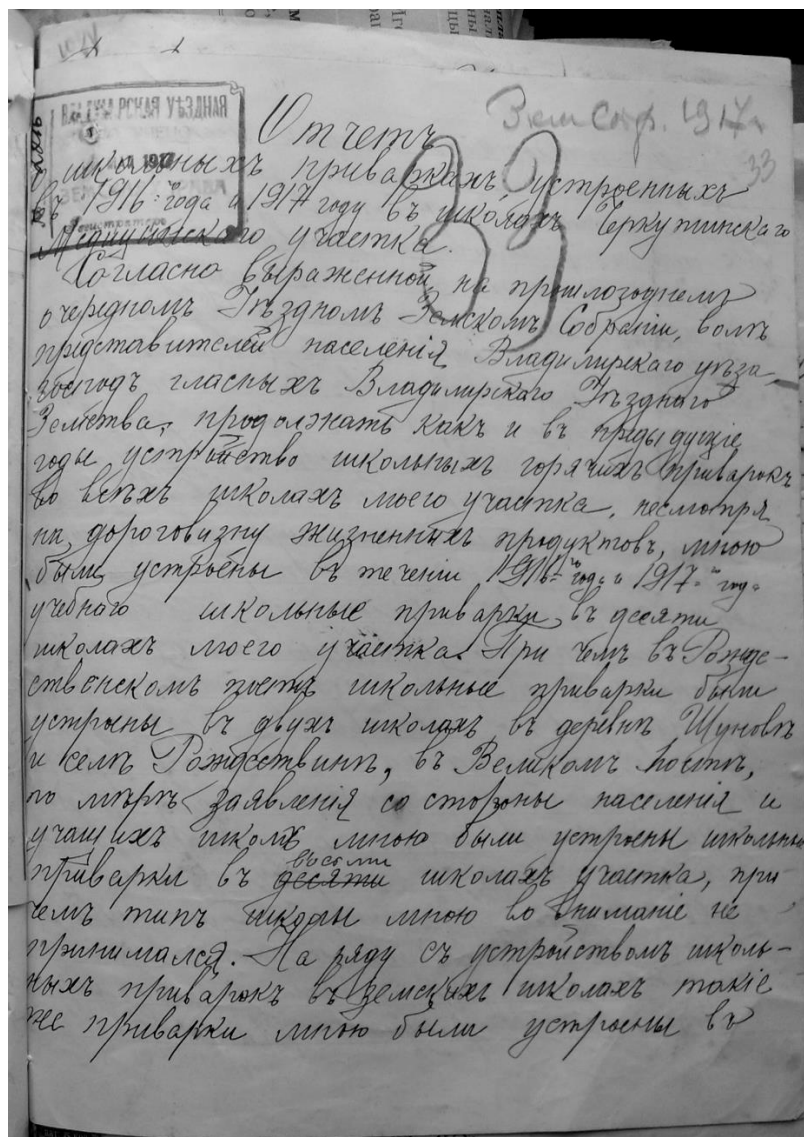 Зем Собр. 1917 г.
33
33
УѢЗДНАЯ
1917
Отчетъ
о школьныхъ приваркахъ устроенныхъ
въ 1916-го года и 1917 году въ школахъ Черкутинскаго
Медицинскаго участка.
Согласно выраженной, на прошлогоднемъ
очередномъ Уѣздномъ Земскомъ Собраніи, волѣ
представителей населенія Владимирскаго уѣзда,
господъ гласныхъ Владимирскаго Уѣзднаго
Земства, продолжать какъ и въ предыдущіе
годы устройство школьныхъ горячихъ приварокъ
во всѣхъ школахъ моего участка, несмотря
на дороговизну жизненныхъ продуктовъ, мною
были устроены въ теченіи 1916-го года и 1917-го год.
учебнаго школьные приварки въ десяти
школахъ моего участка. При чемъ въ Рожде-
ственскомъ постѣ школьные приварки были
устроены въ двухъ школахъ въ деревнѣ Шуновѣ
и селѣ Рождествинѣ, въ Великомъ постѣ,
по мѣрѣ заявленія со стороны населенія и
учащихъ школъ мною были устроены школьны
приварки въ десяти восьми школахъ участка, при
чемъ типъ школы мною во вниманіе не
принимался. На ряду съ устройствомъ школь-
ныхъ приварокъ въ земскихъ школахъ такіе
же приварки мною были устроены въ